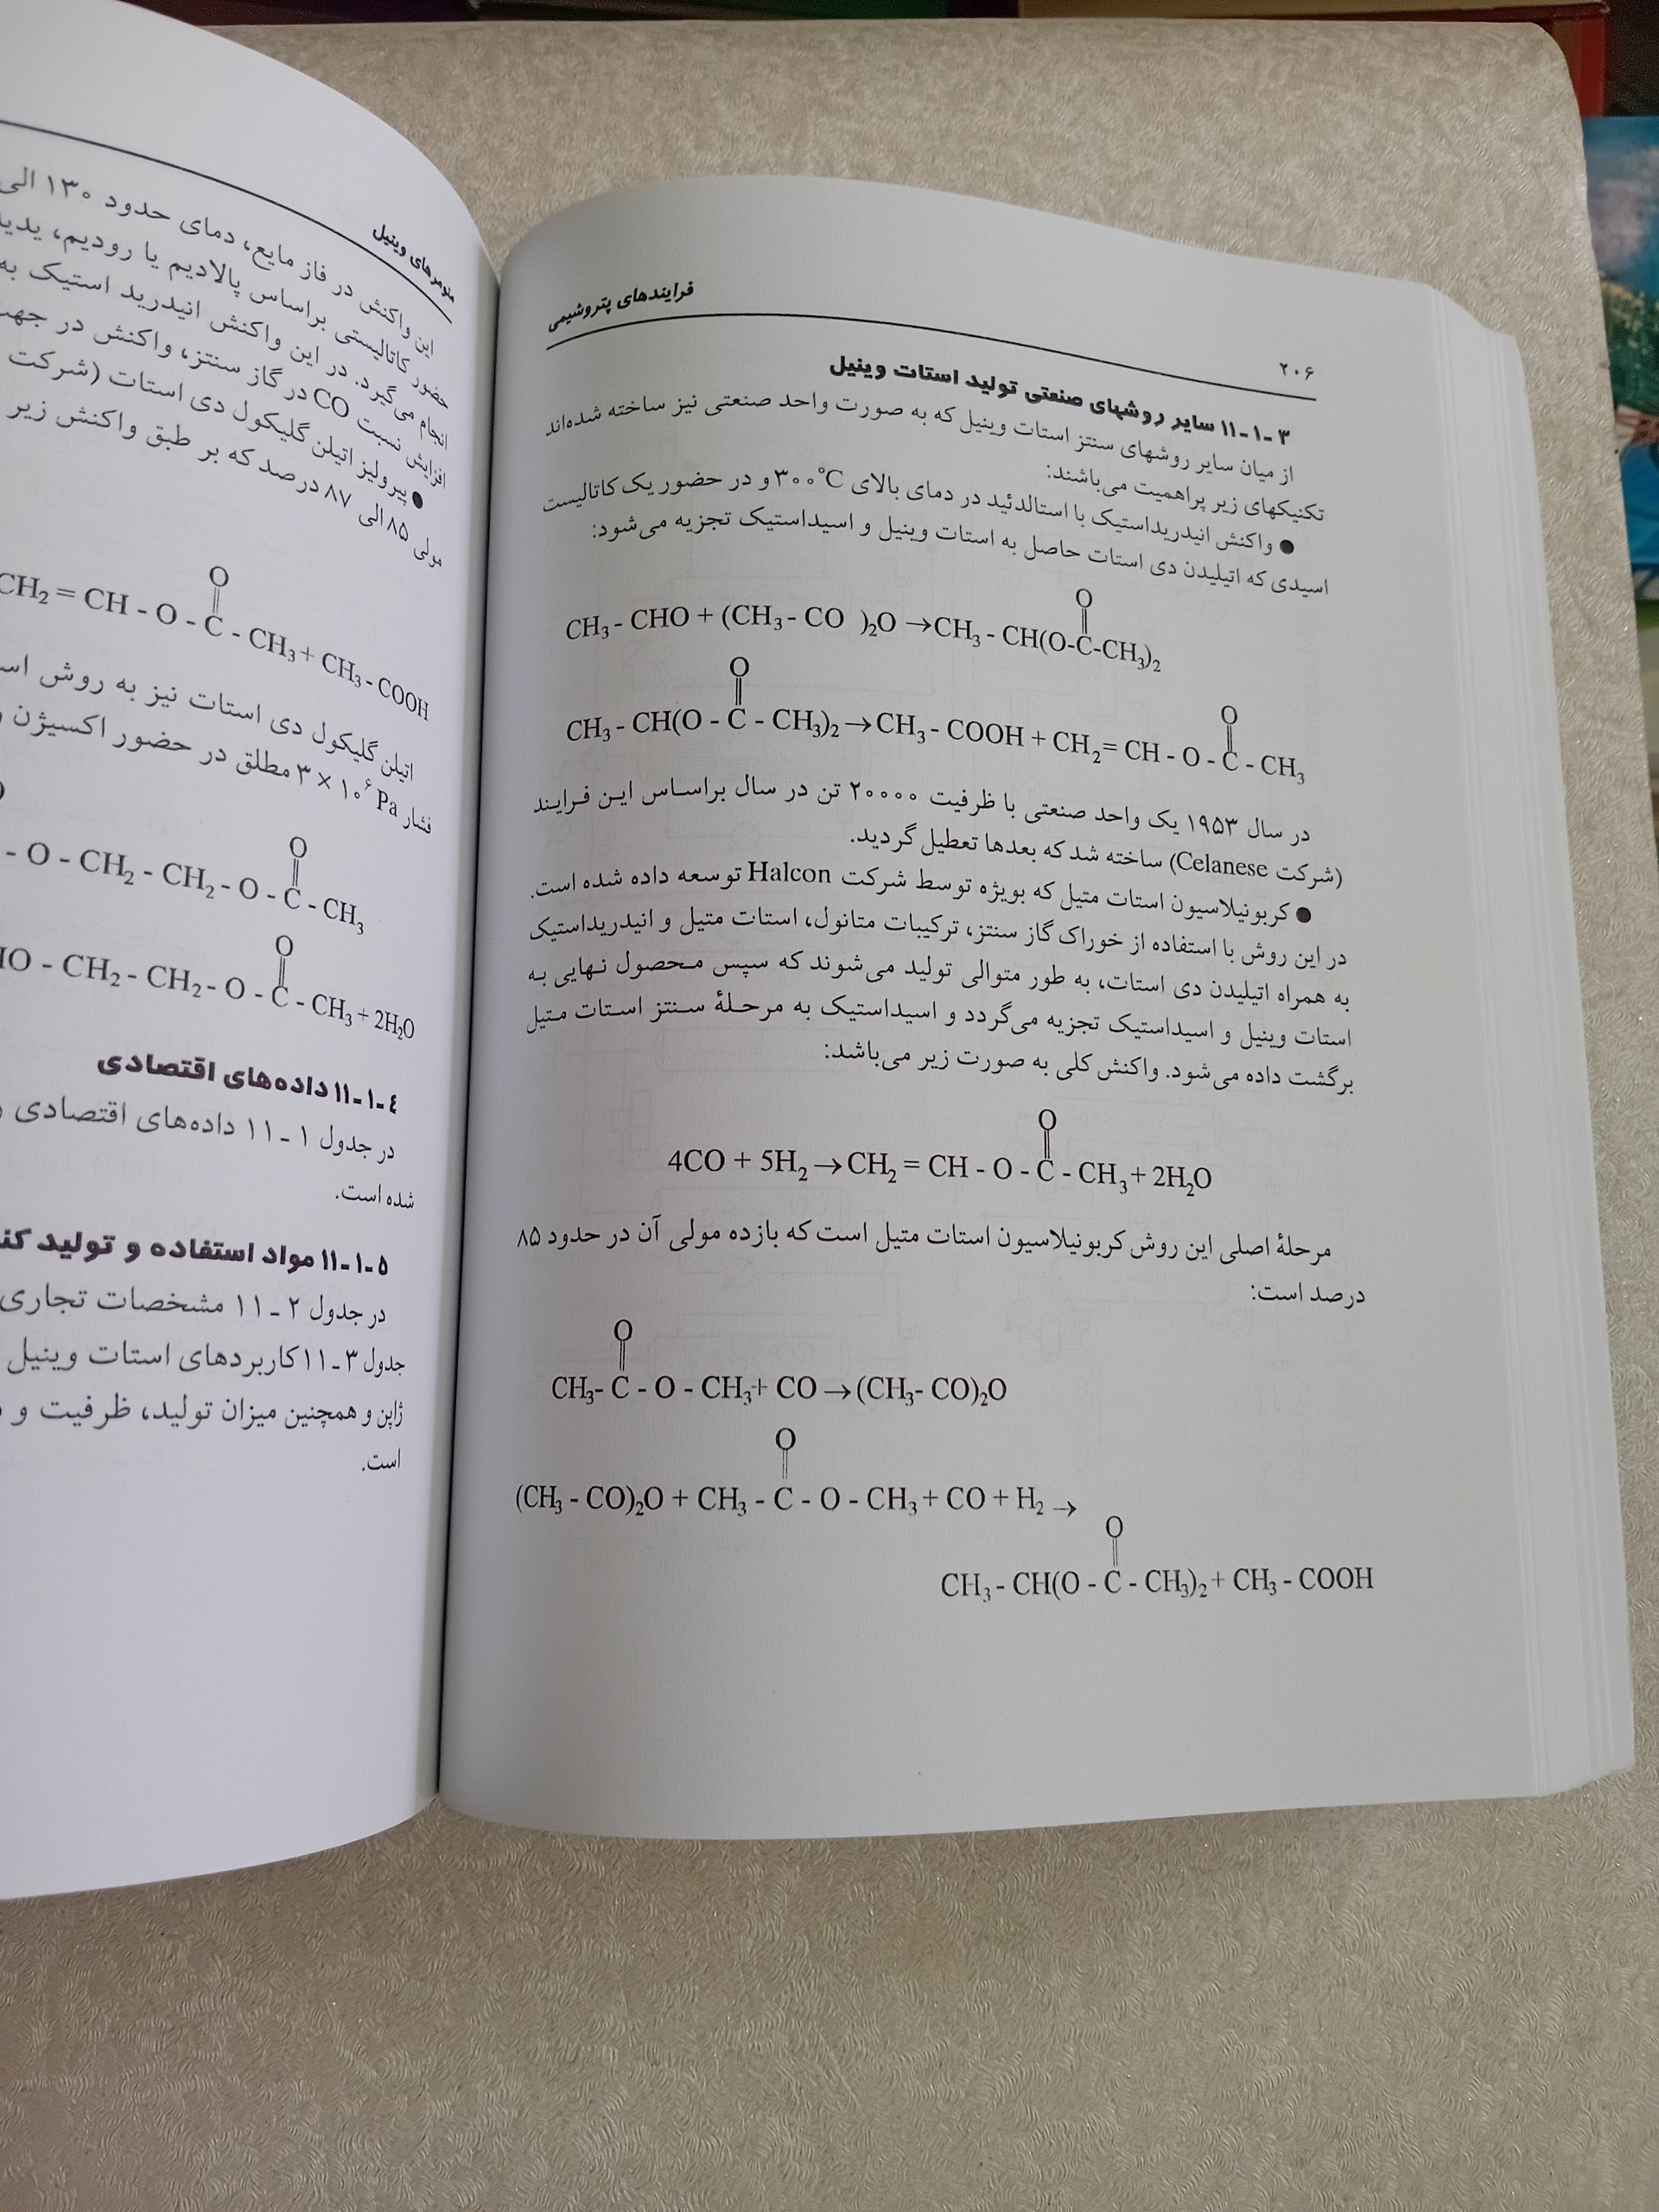 ۲۰۶
فرایندهای پتروشیمی
۳-۱-۱۱ سایر روشهای صنعتی تولید استات وینیل
از میان سایر روشهای سنتز استات وینیل که به صورت واحد صنعتی نیز ساخته شده‌اند
تکنیکهای زیر پراهمیت می‌باشند:
● واکنش انیدریداستیک با استالدئید در دمای بالای ۳۰۰°C و در حضور یک کاتالیست
اسیدی که اتیلیدن دی استات حاصل به استات وینیل و اسیداستیک تجزیه می‌شود:
O
CH₃ - CHO + (CH₃ - CO )₂O → CH₃ - CH(O-C-CH₃)₂
O
O
CH₃ - CH(O - C - CH₃)₂ → CH₃ - COOH + CH₂ = CH - O - C - CH₃
در سال ۱۹۵۳ یک واحد صنعتی با ظرفیت ۲۰۰۰۰ تن در سال براساس این فرایند
(شرکت Celanese) ساخته شد که بعدها تعطیل گردید.
● کربونیلاسیون استات متیل که بویژه توسط شرکت Halcon توسعه داده شده است.
در این روش با استفاده از خوراک گاز سنتز، ترکیبات متانول، استات متیل و انیدریداستیک
به همراه اتیلیدن دی استات، به طور متوالی تولید می‌شوند که سپس محصول نهایی به
استات وینیل و اسیداستیک تجزیه می‌گردد و اسیداستیک به مرحلهٔ سنتز استات متیل
برگشت داده می‌شود. واکنش کلی به صورت زیر می‌باشد:
O
4CO + 5H₂ → CH₂ = CH - O - C - CH₃ + 2H₂O
مرحلهٔ اصلی این روش کربونیلاسیون استات متیل است که بازده مولی آن در حدود ۸۵
درصد است:
O
CH₃- C - O - CH₃+ CO → (CH₃- CO)₂O
O
(CH₃ - CO)₂O + CH₃ - C - O - CH₃ + CO + H₂ →
O
CH₃ - CH(O - C - CH₃)₂ + CH₃ - COOH
منومرهای وینیل
این واکنش در فاز مایع، دمای حدود ۱۳۰ الی
حضور کاتالیستی براساس پالادیم یا رودیم،
انجام می‌گیرد. در این واکنش انیدرید استیک به
افزایش نسبت CO در گاز سنتز، واکنش در
● پیرولیز اتیلن گلیکول دی استات (شرکت
مولی ۸۵ الی ۸۷ درصد که بر طبق واکنش زیر
O
CH₂ = CH - O - C - CH₃ + CH₃ - COOH
اتیلن گلیکول دی استات نیز به روش
فشار ۳ × ۱۰⁶ Pa مطلق در حضور اکسیژن
O
- O - CH₂ - CH₂ - O - C - CH₃
O
O - CH₂ - CH₂ - O - C - CH₃ + 2H₂O
۴-۱-۱۱ داده‌های اقتصادی
در جدول ۱-۱۱ داده‌های اقتصادی
شده است.
۵-۱-۱۱ مواد استفاده و تولید
در جدول ۲-۱۱ مشخصات تجاری
جدول ۳-۱۱ کاربردهای استات وینیل
ژاپن و همچنین میزان تولید، ظرفیت و
است.